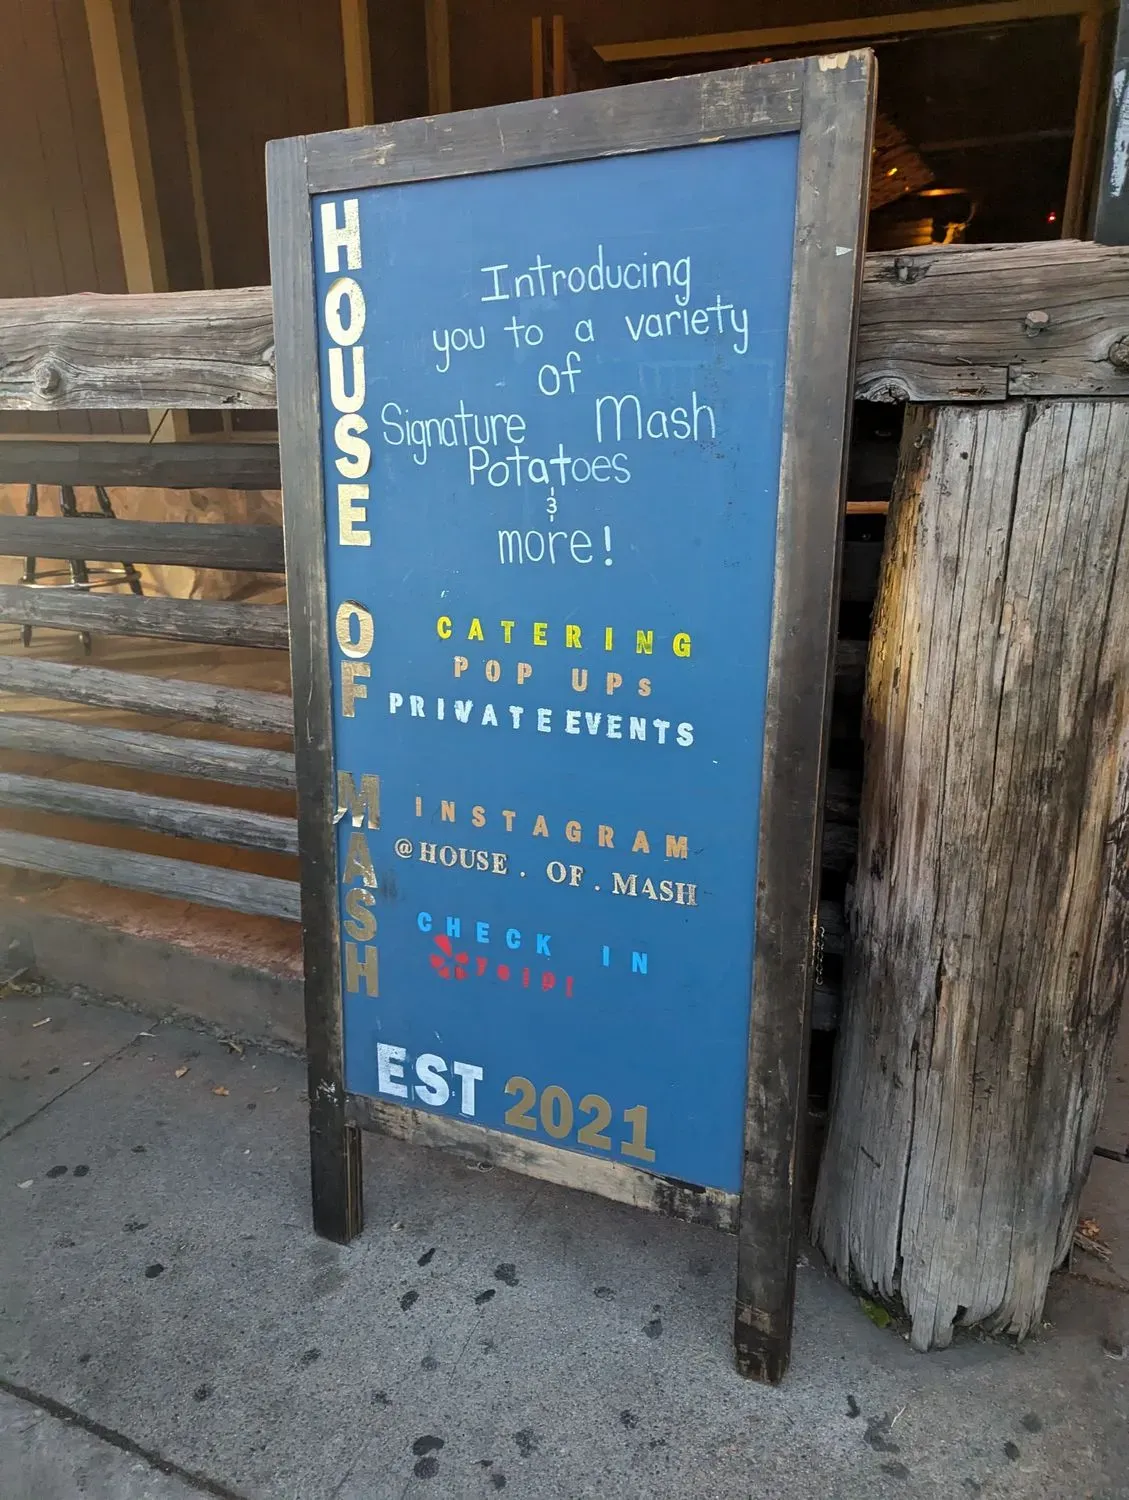 HOUSE OF MASH
Introducing
you to a variety
of
Signature Mash
Potatoes
&
more!
CATERING
POP UPS
PRIVATE EVENTS
INSTAGRAM
@HOUSE.OF.MASH
CHECK IN
yelp!
EST 2021